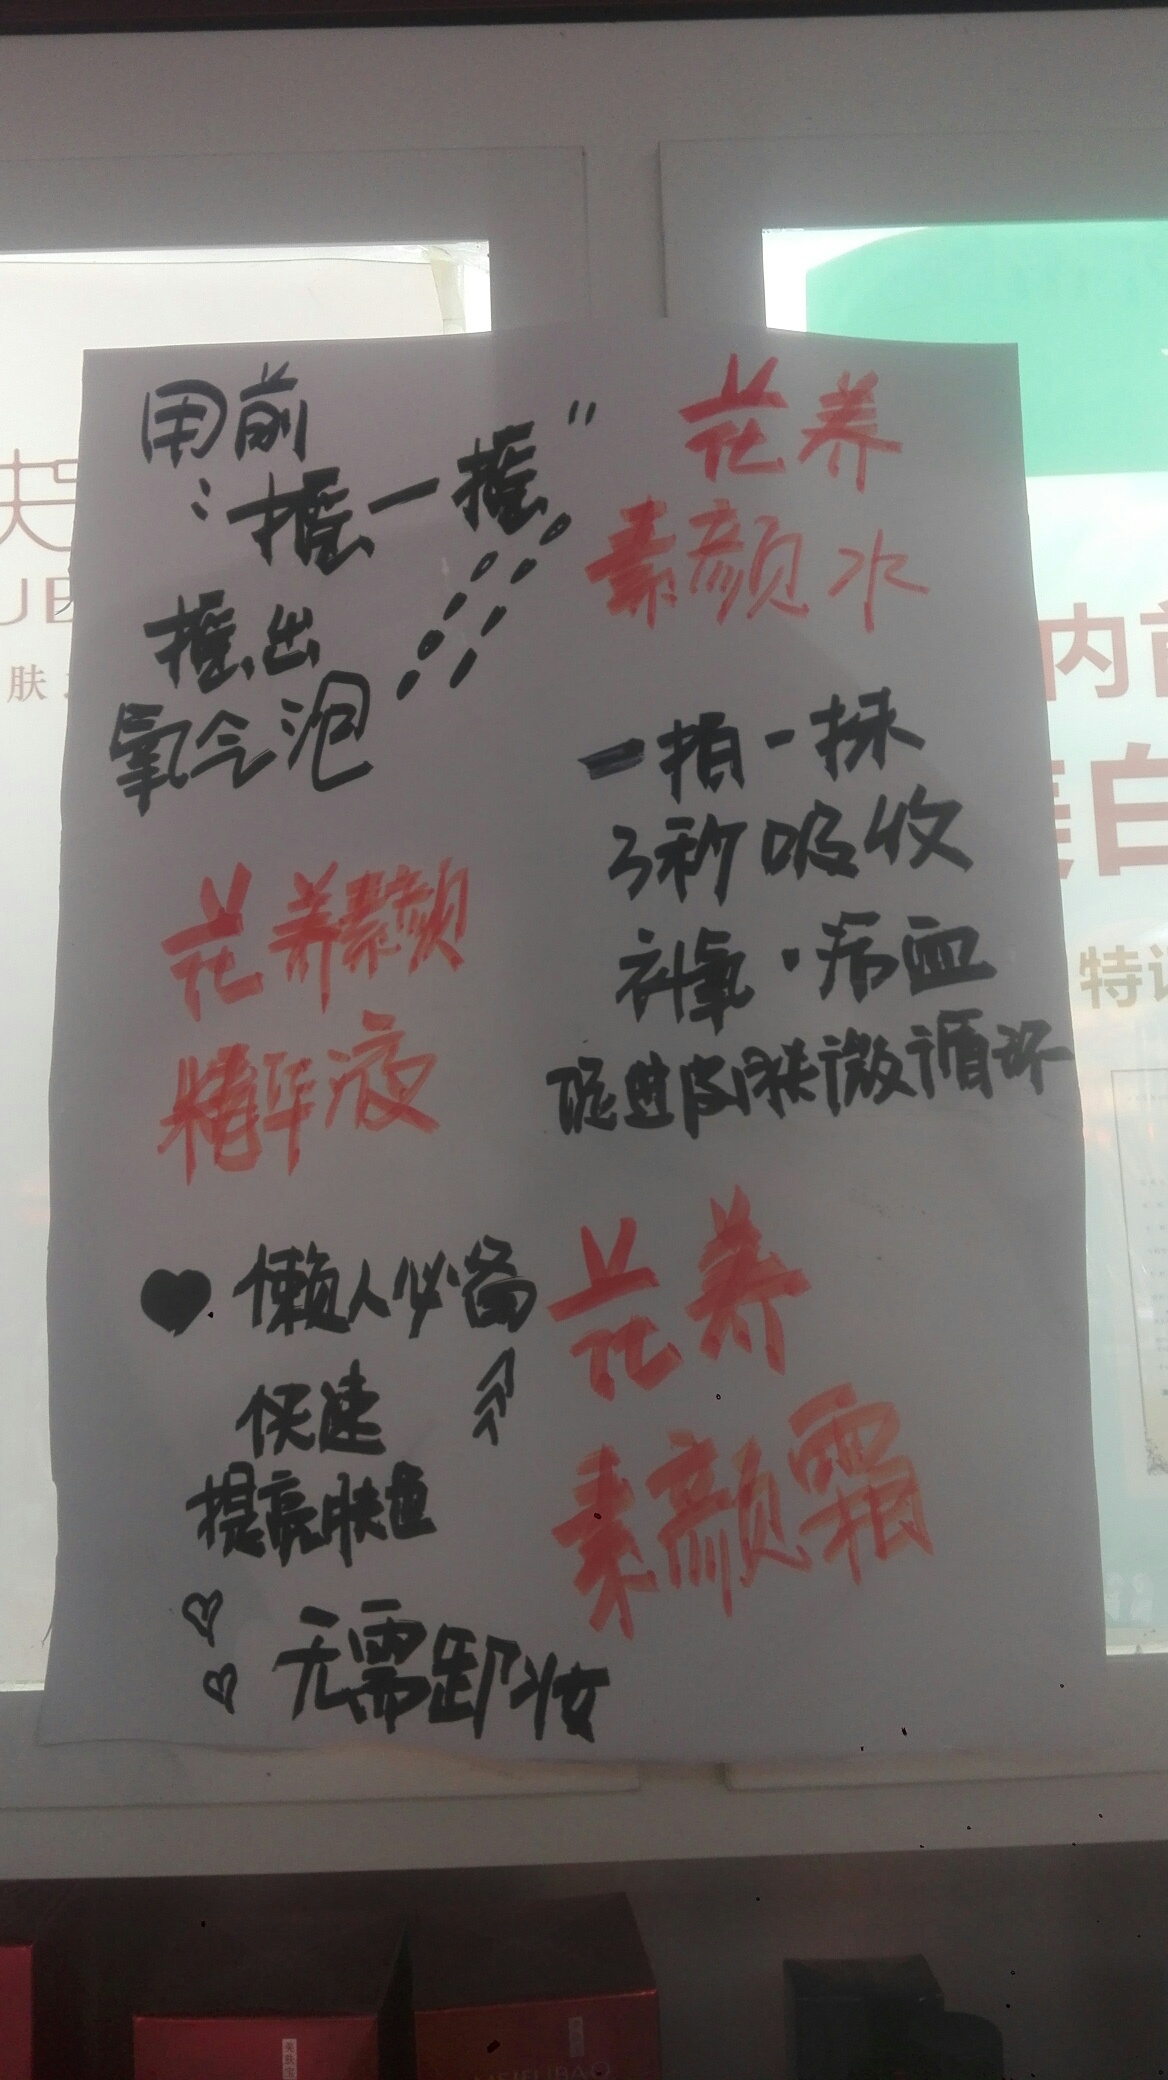 用前
摇一摇
摇出
氧气泡
花养
素颜水
一拍一抹
3秒吸收
补氧·活血
促进皮肤微循环
花养素颜
精华液
懒人必备
快速
提亮肤色
无需卸妆
花养
素颜霜
肤
内
白
特
美肤宝